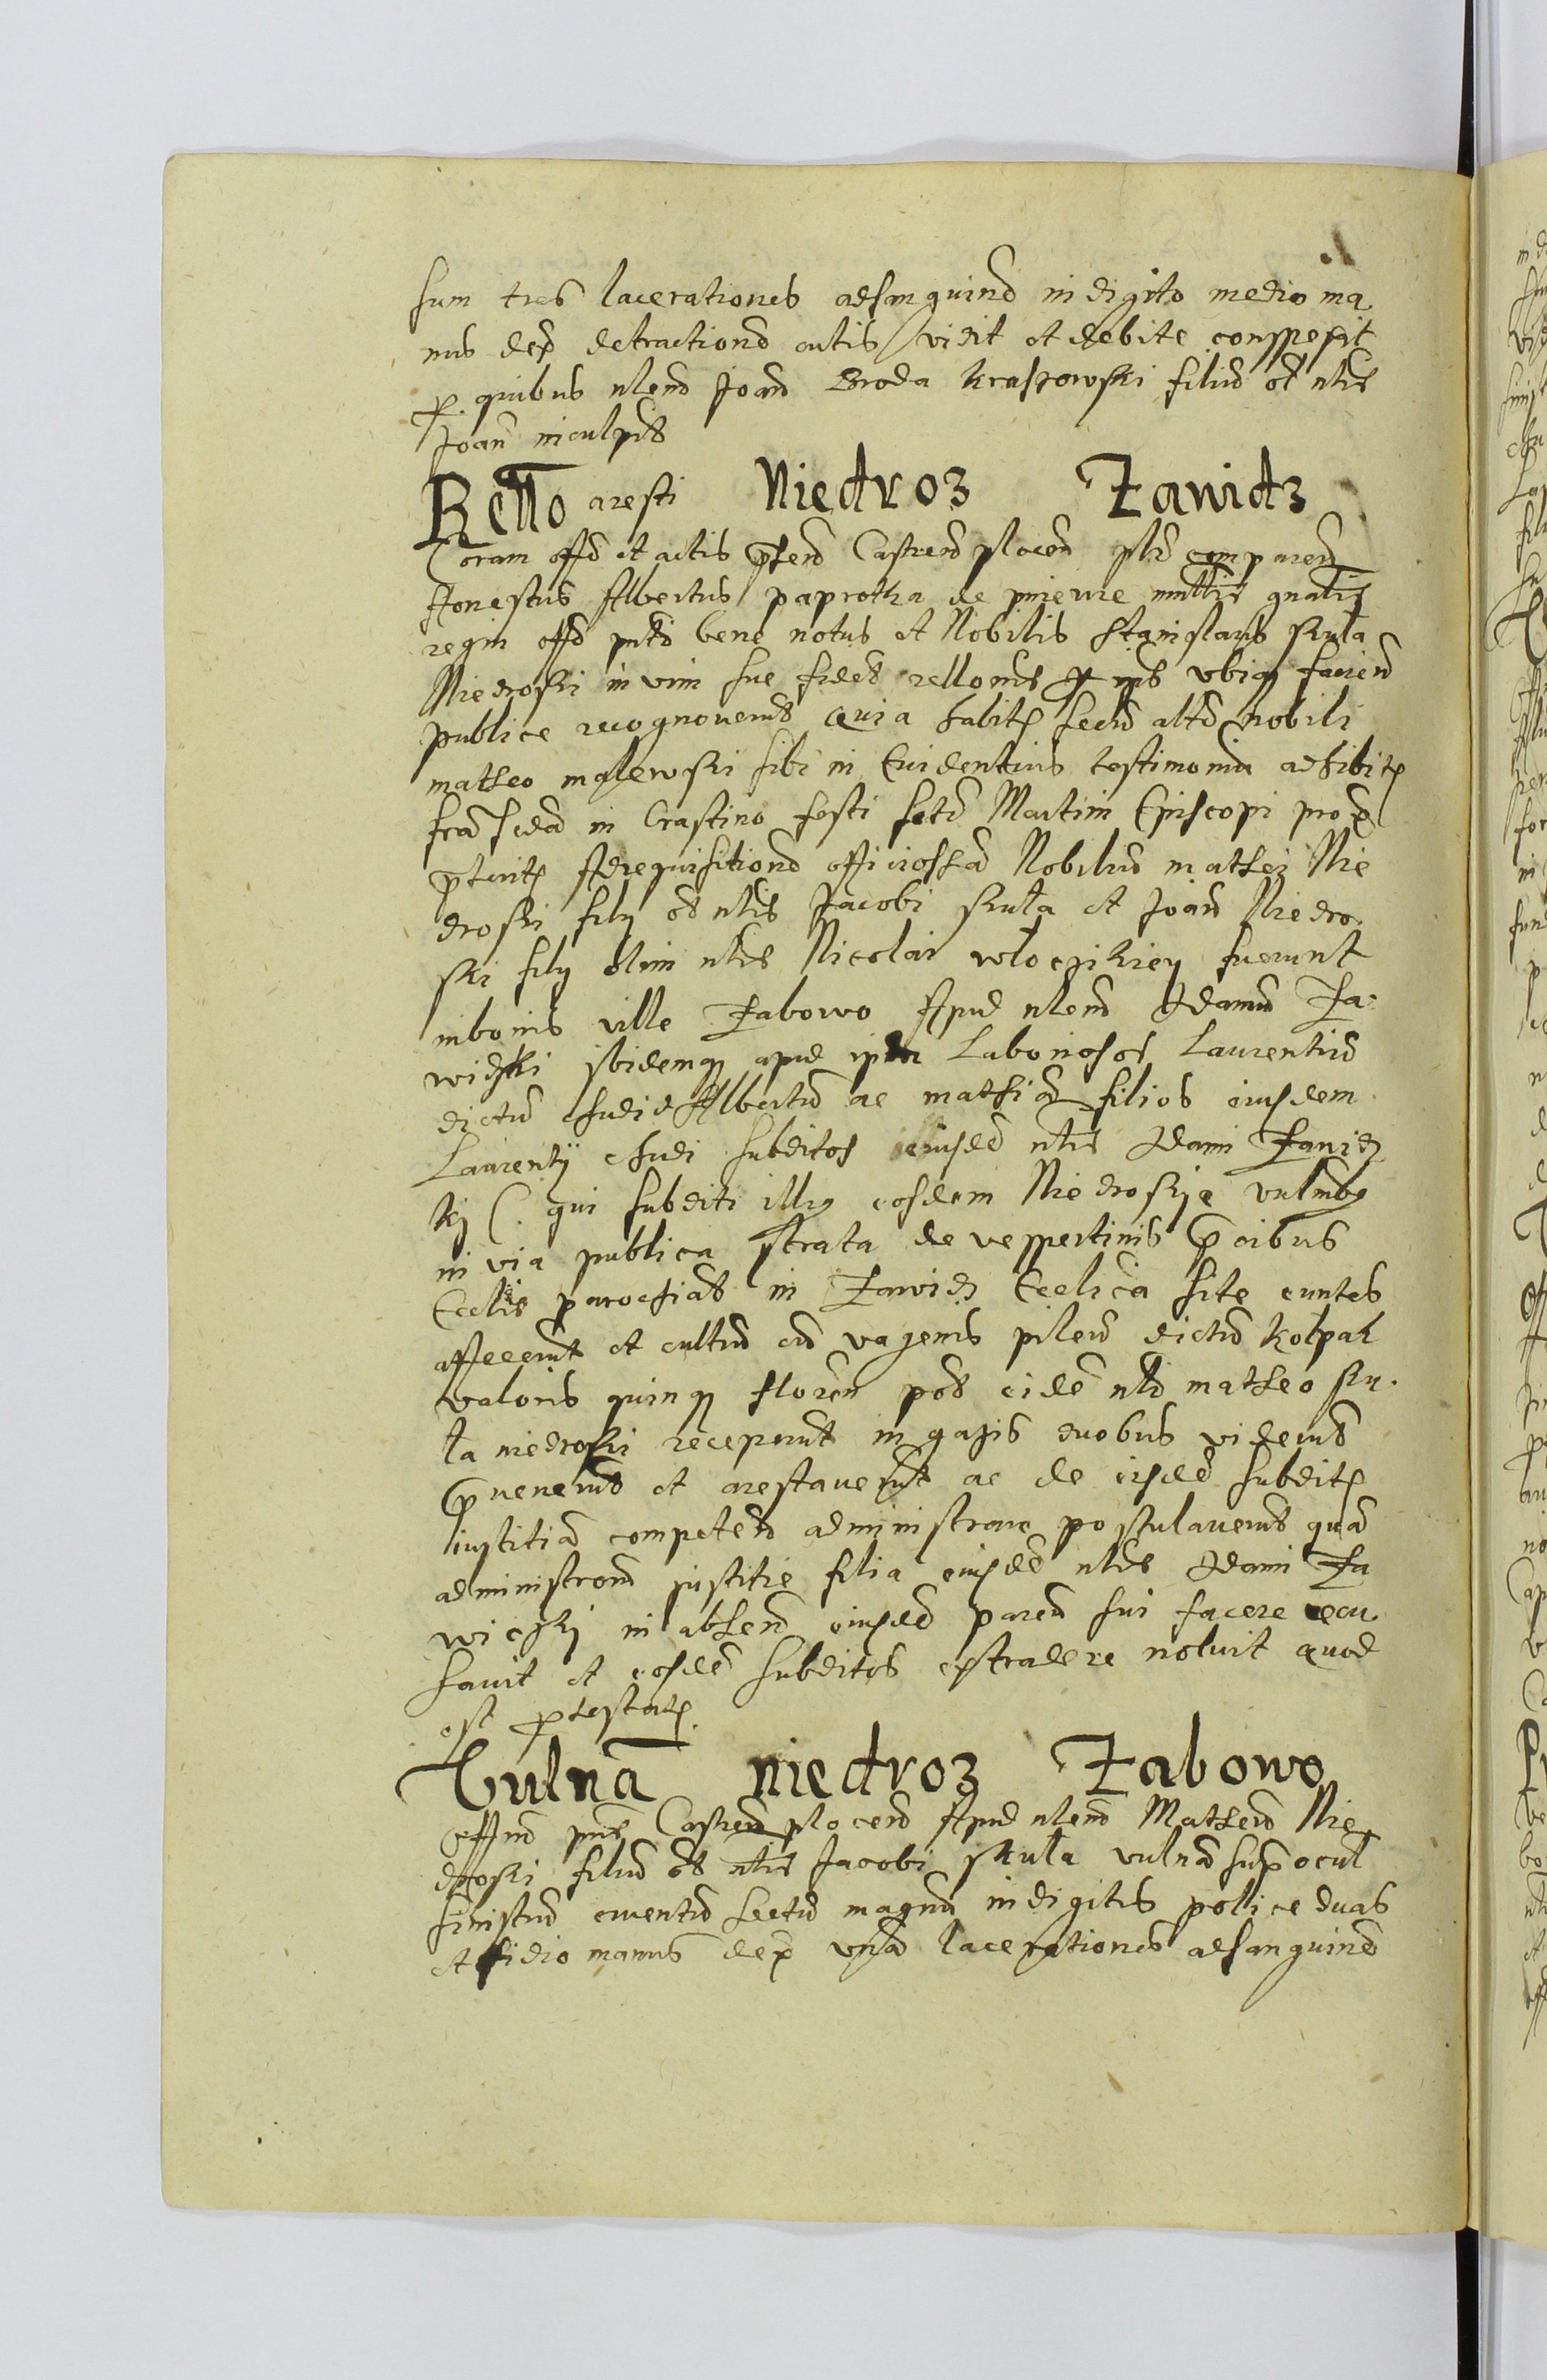 sum tres lacerationes adsanguined in digito medio ma
nus dex detractioned cutis vidit et debite conspexit
p quibus nlem Joan Broda Kraszowski filiu ol nlis
Joan inculpat
Rello aresti Niedroz Zawidz
Coram offo et actis pntem Castren plocen plr comparen
Honestus Albertus paprotka de mttlis gnalis
regni offo pnti bene notus et Nobilis Stanislaus Skula
Niedroski in vim sue fidelis relloms ubiq facien
publice recognoverut quia habita secu alto nobili
matheo malewski sibi in Evidentius testimoniu adhibito
fra scda in Crastino festi scti Martini Episcopi prox
pterita Adrequisitione officiosam Nobiliu mathei Nie
droski filij ol nlis Jacobi Skula et Joan Niedro
ski filij olim nlis Nicolai fuerunt
in bonis ville Zabowo Apud nlem Adamu Za
widzki ibidemq apud ipsu Laboriosos Laurentiu
dictu Chudi Albertu ac mathia filios eiusdem
Laurentij Chudi subditos eiusde nlis Adami Zawidz
kj qui subditi illos eosdem Niedroskie vulnibus
in via publica strata de vespertinis pcibus
Ecclie parochialis in Zawidz Ecclica site euntes
affecerut et cultru cu vagenis pileu dictu kolpak
valoris quinq floren pol eide nli matheo Sku
la niedroski receperunt in gagis duobus viderut
pvenerut et arestaverut ac de eisde subditis
iustitia competen administrare postulaverut qua
administrom justitie filia eiusde nlis Adami Za
wiczkj in absen eiusde paren sui facere recu
savit et eosde subditos extradere noluit quod
est ptestata
Vulna niedroz Zabowo
Offiu pns Castren plocen Apud nlem Matheu Nie
droski filiu ol nlis Jacobi Skula vulna sup ocul
sinistru cruentu sectu magnu in digitis pollice duas
et medio manus dex una lacerationes adsanguine